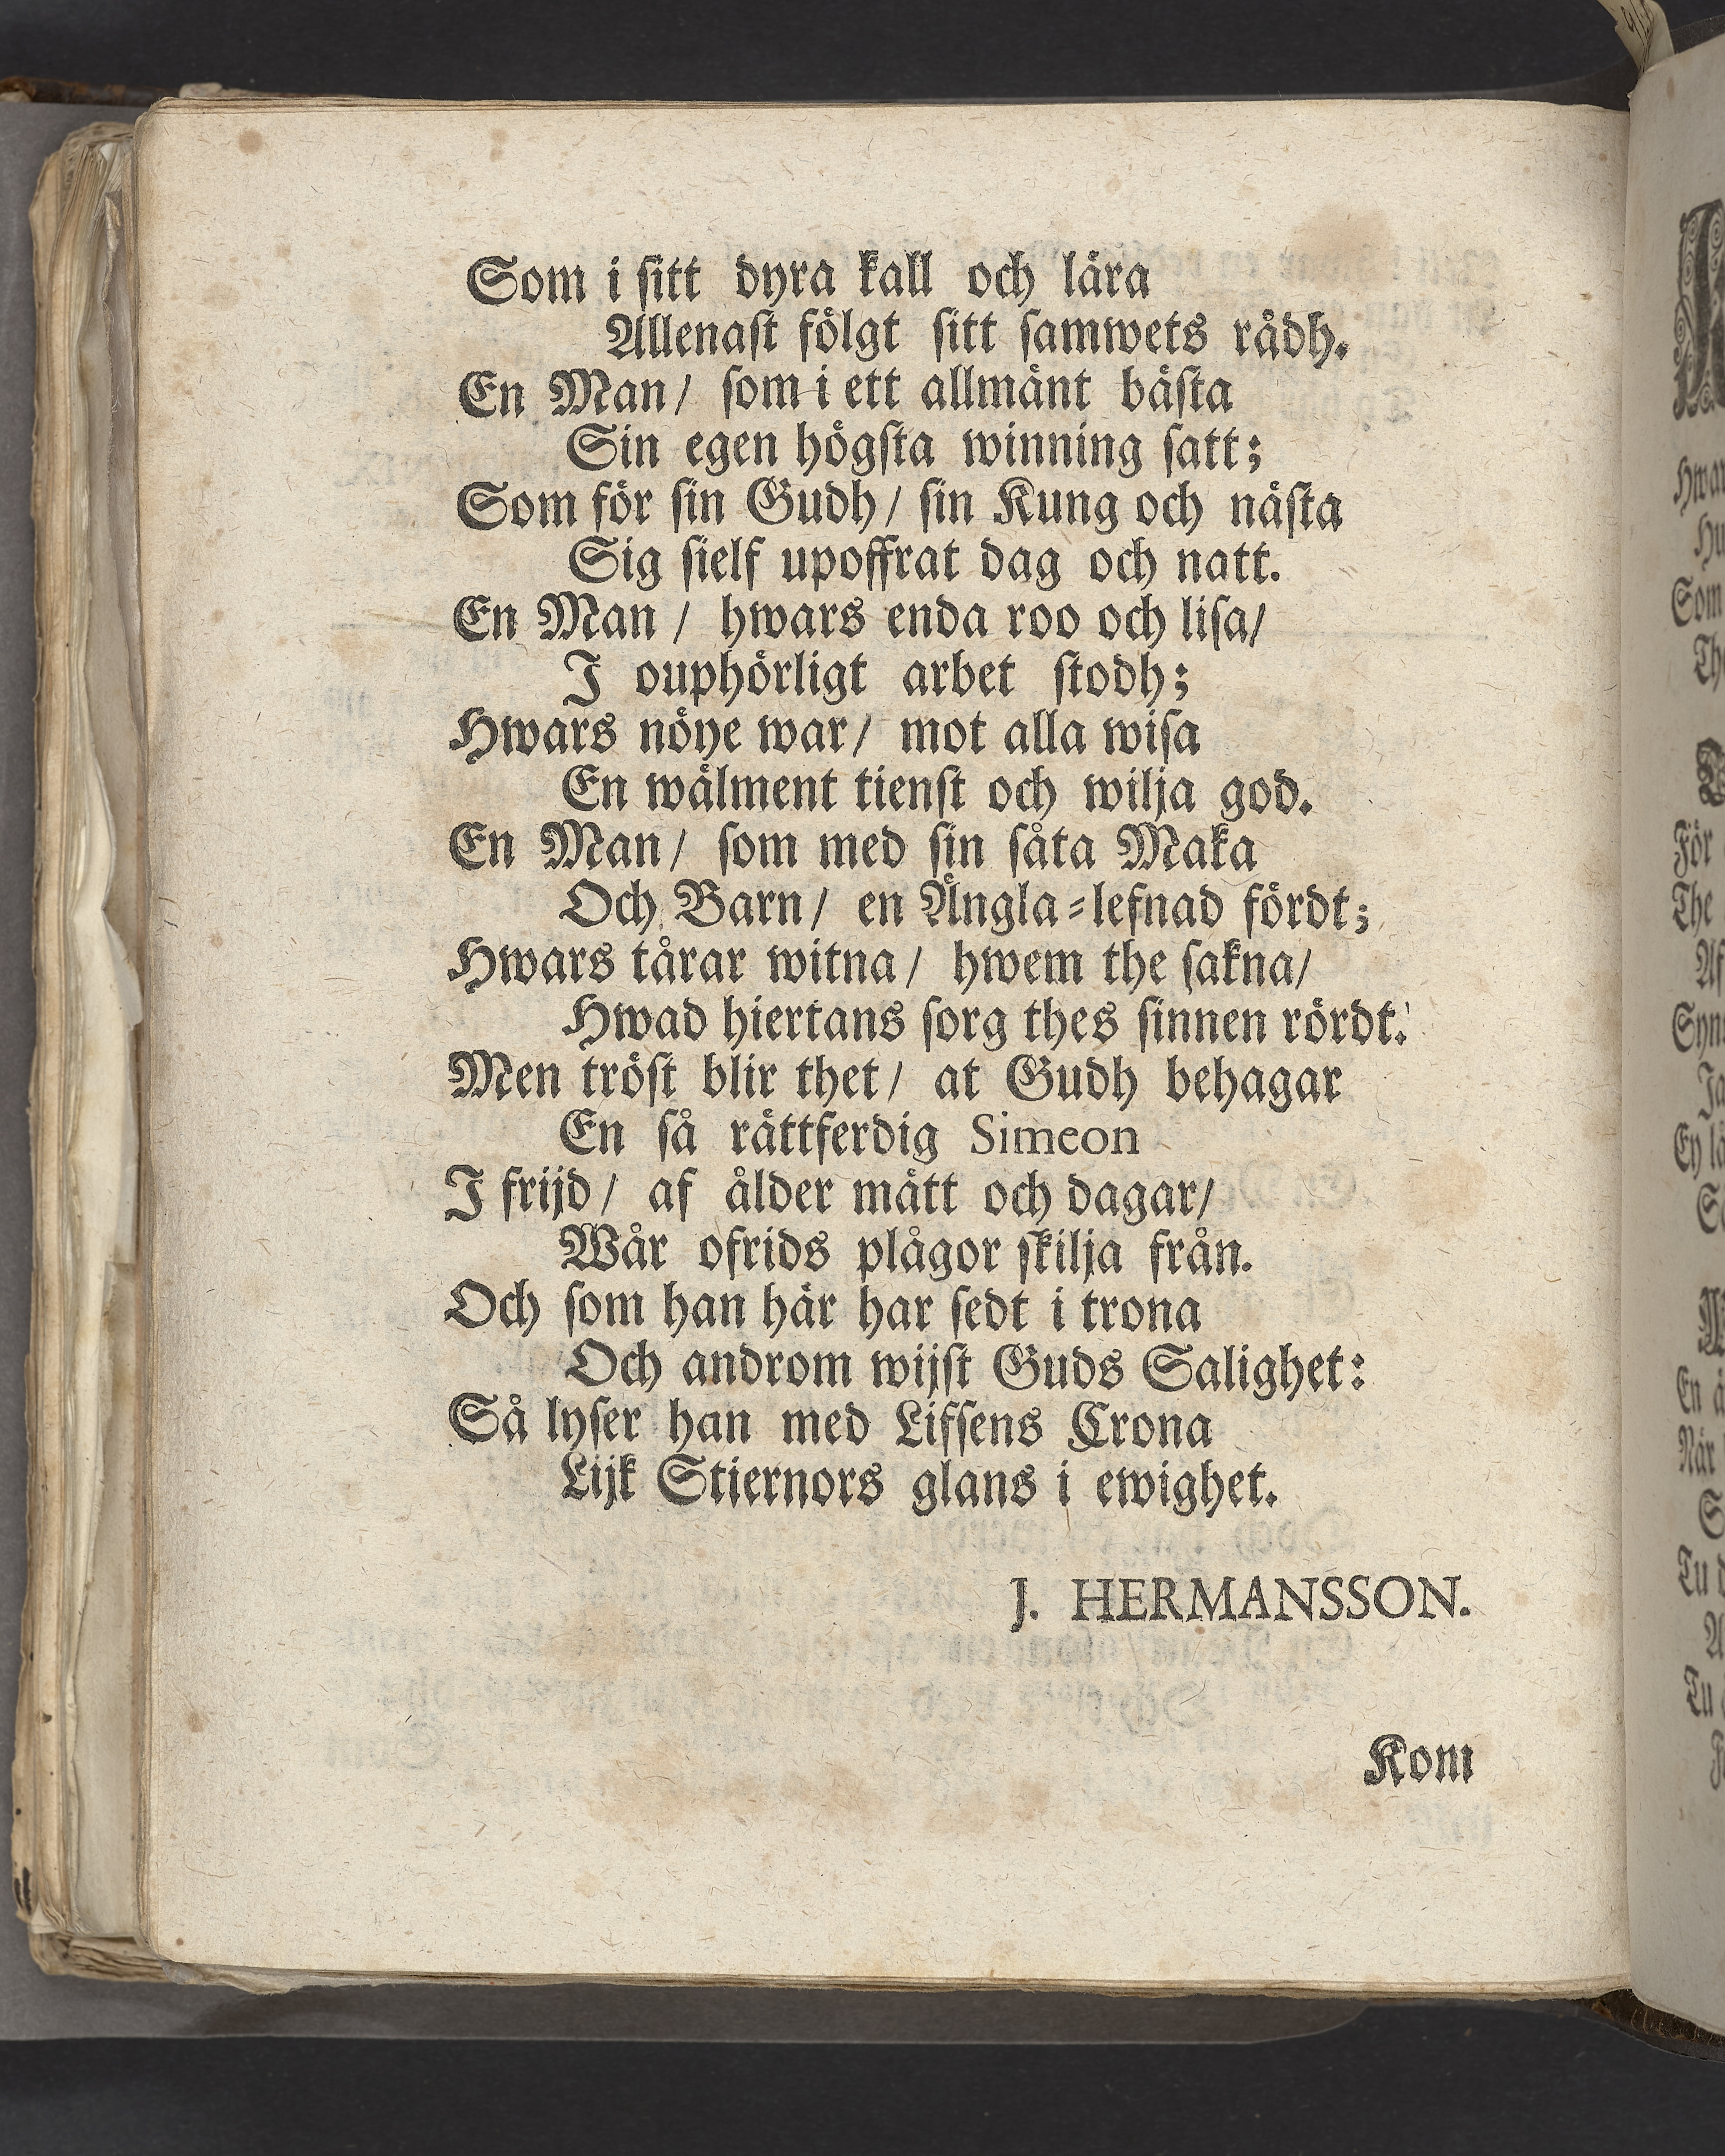 Som i ſitt dyra kall och lära
Allenaſt fölgt ſitt ſamwets rådh.
En Man / ſom i ett allmänt bäſta
Sin egen högſta winning ſatt;
Som för ſin Gudh / ſin Kung och näſta
Sig ſielf upoffrat dag och natt.
En Man / hwars enda roo och liſa /
I ouphörligt arbet ſtodh;
Hwars nöye war / mot alla wiſa
En wälment tienſt och wilja god.
En Man / ſom med ſin ſåta Maka
Och Barn / en Ängla-lefnad fördt;
Hwars tårar witna / hwem the ſakna /
Hwad hiertans ſorg thes ſinnen rördt.
Men tröſt blir thet / at Gudh behagar
En ſå rättferdig Simeon
I frijd / af ålder mätt och dagar /
Wår ofrids plågor ſkilja från.
Och ſom han här har ſedt i trona
Och androm wijſt Guds Salighet:
Så lyſer han med Lifſens Crona
Lijk Stiernors glans i ewighet.
J. HERMANSSON.
Kom
Hwar
Som
För
The
Af
En
När